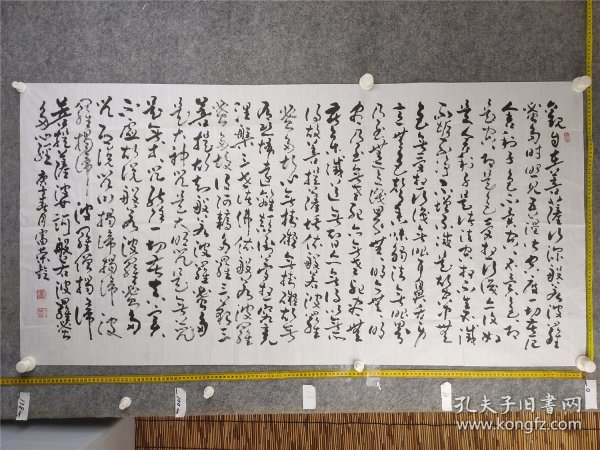 觀自在菩薩行深般若波羅
蜜多時照見五蘊皆空度一切苦厄
舍利子色不異空空不異色色即
是空空即是色受想行識亦復如
是舍利子是諸法空相不生不滅
不垢不淨不增不減是故空中無
色無受想行識無眼耳鼻舌身
意無色聲香味觸法無眼界
乃至無意識界無無明亦無無明
盡乃至無老死亦無老死盡無
苦集滅道無智亦無得以無所
得故菩提薩埵依般若波羅
蜜多故心無罣礙無罣礙故無
有恐怖遠離顛倒夢想究竟
涅槃三世諸佛依般若波羅
蜜多故得阿耨多羅三藐三
菩提故知般若波羅蜜多
是大神咒是大明咒是無上咒
是無等等咒能除一切苦真實
不虛故說般若波羅蜜多
咒即說咒曰揭諦揭諦 波
羅揭諦 波羅僧揭諦
菩提薩婆訶 般若波羅蜜
多心經
孔夫子旧书网
www.kongfz.com